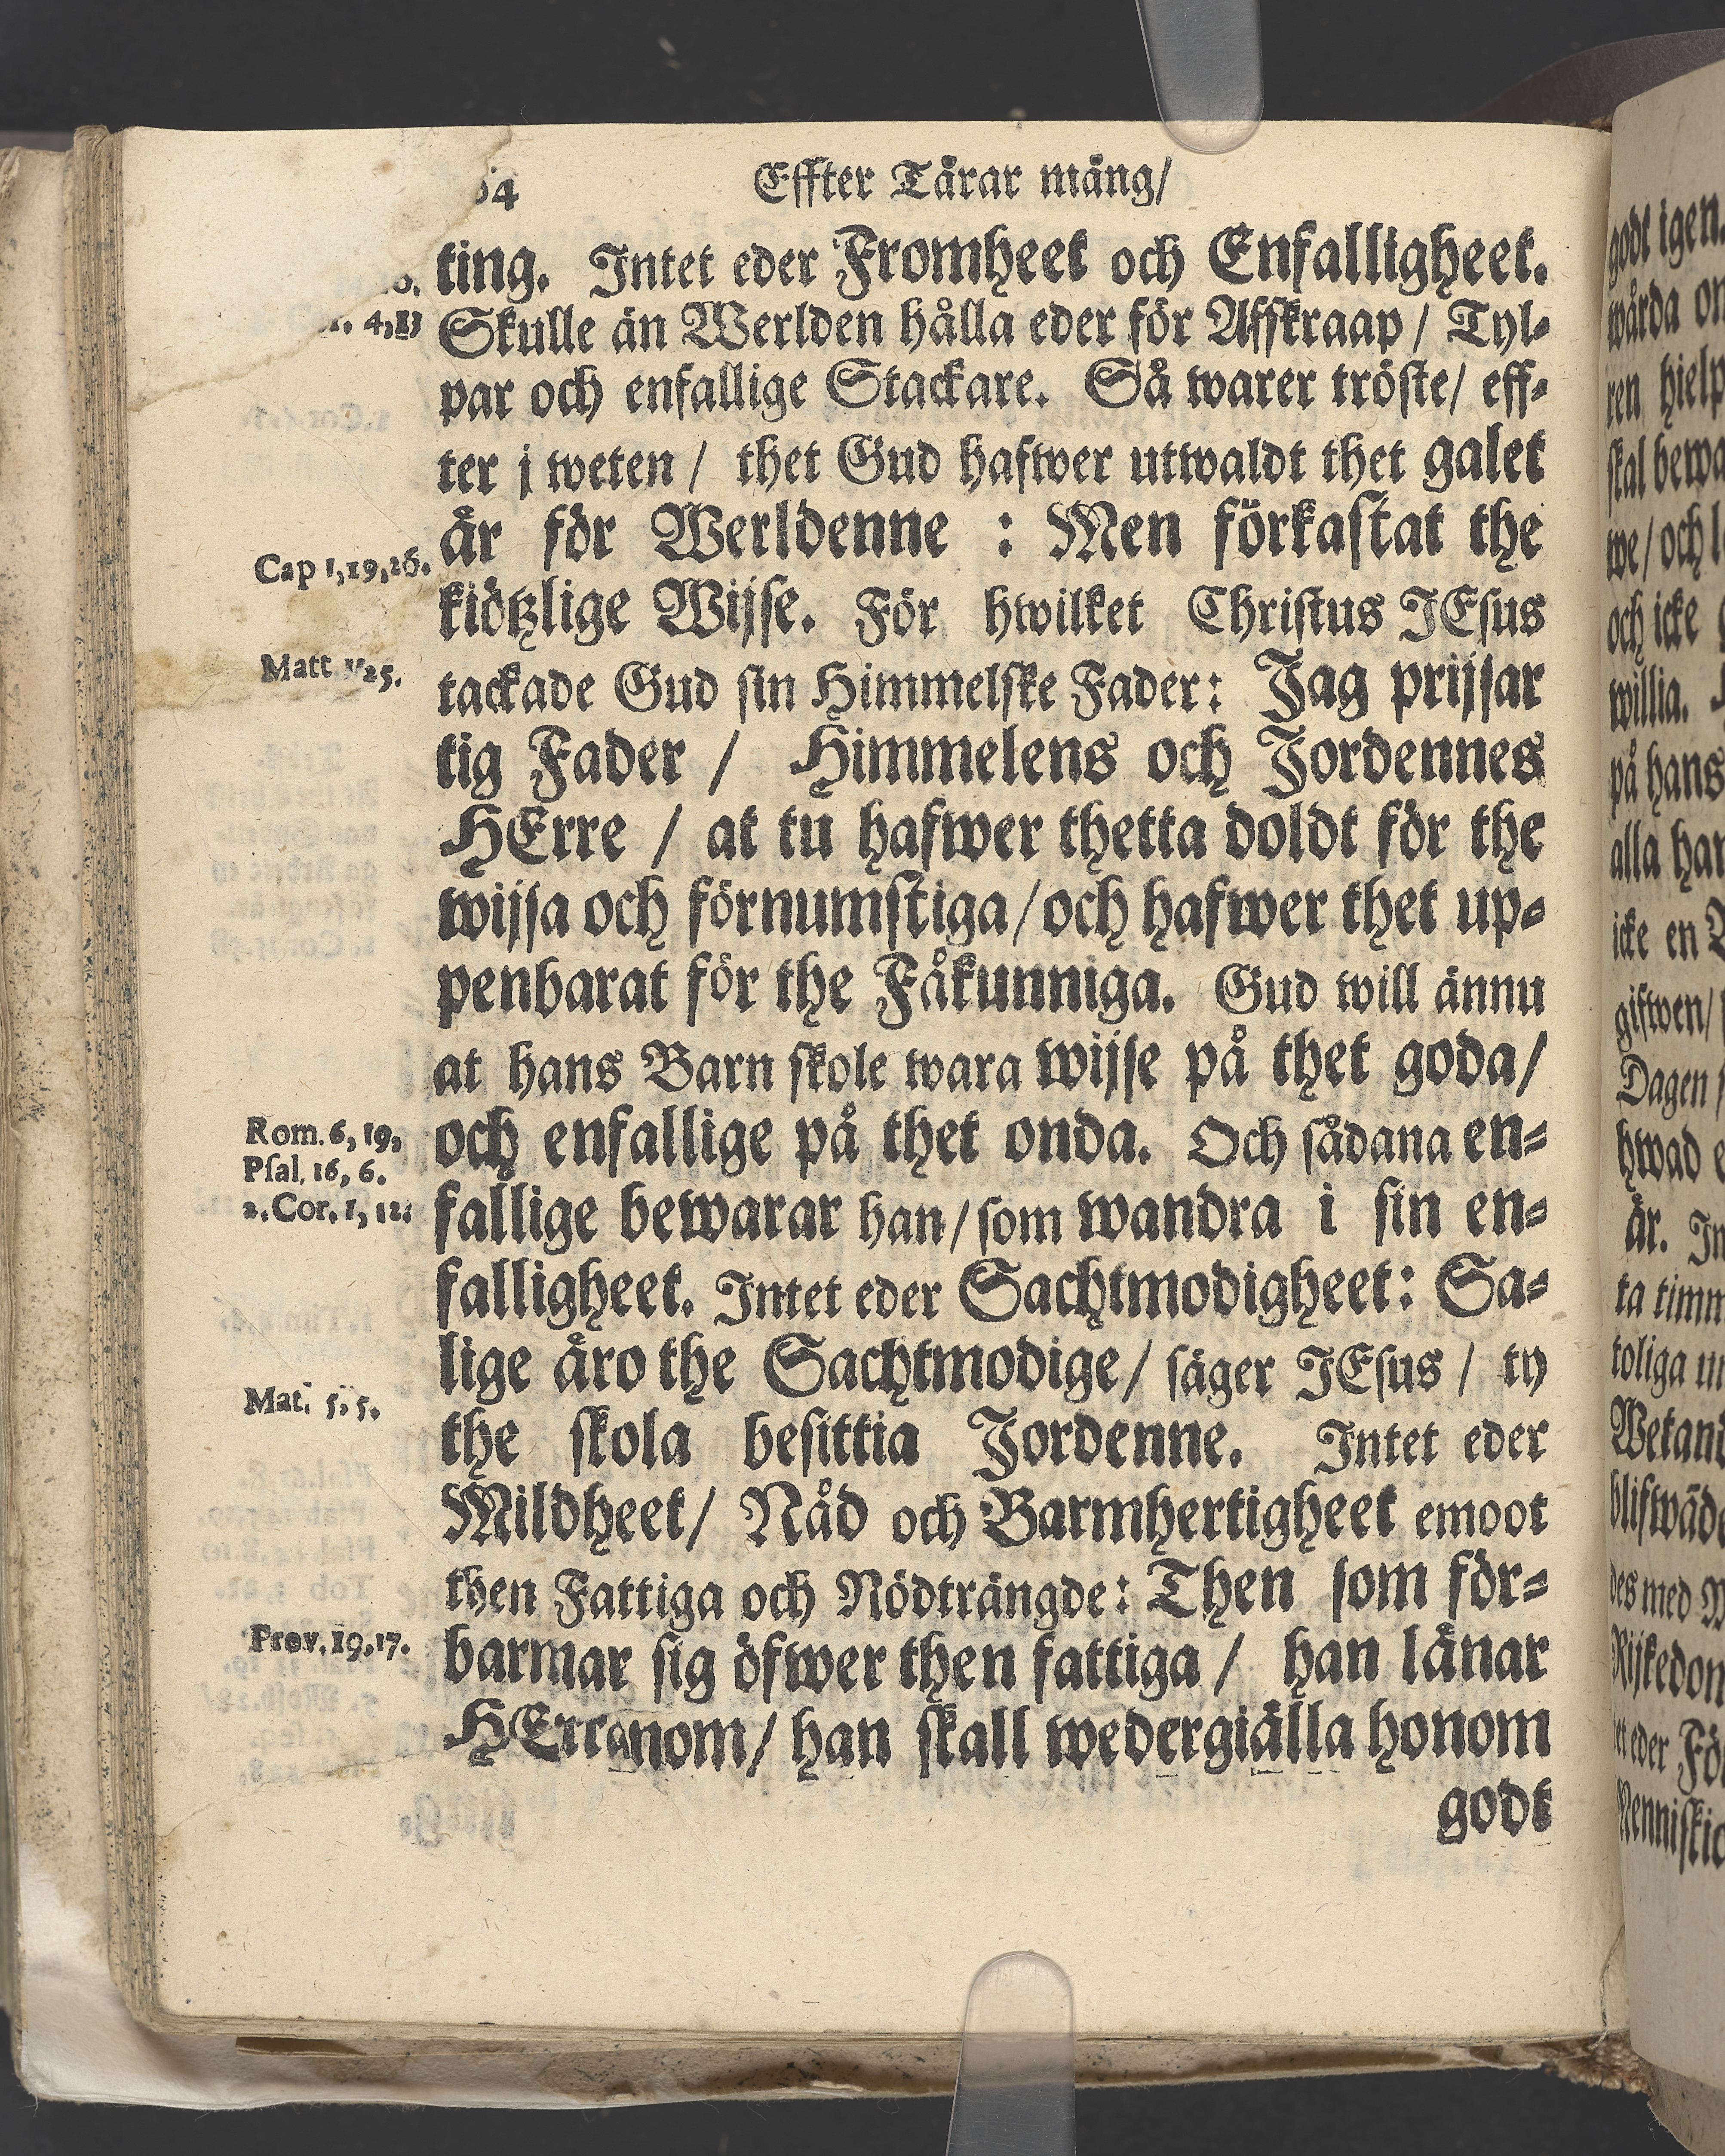 64 Effter Tårar mång/
ting. Intet eder Fromheet och Enfalligheet.
Skulle än Werlden hålla eder för Affskraap / Tyl-
par och enfallige Stackare. Så warer tröste/ eff-
ter j weten / thet Gud hafwer utwaldt thet galet
år för Werldenne : Men förkastat the
kiötzlige Wijse. För hwilket Christus JEsus
tackade Gud sin Himmelske Fader: Jag prijsar
tig Fader / Himmelens och Jordennes
HErre / at tu hafwer thetta doldt för the
wijsa och förnumstiga/och hafwer thet up-
penbarat för the Fåkunniga. Gud will ännu
at hans Barn skole wara wijse på thet goda/
och enfallige på thet onda. Och sådana en-
fallige bewarar han/som wandra i sin en-
falligheet. Intet eder Sachtmodigheet: Sa-
lige åro the Sachtmodige/ säger JEsus / ty
the skola besittia Jordenne. Intet eder
Mildheet/ Nåd och Barmhertigheet emoot
then Fattiga och Nödträngde: Then som för-
barmar sig öfwer then fattiga / han lånar
HErranom/ han skall wedergiälla honom
godt
4,13
Cap 1,19,26.
Matt 11,25.
Rom. 6, 19,
Psal. 16, 6.
2. Cor. 1, 12:
Mat. 5. 5.
Prov. 19.17.
godt igen.
hielp
och icke
willia.
på hans
icke en
Dagen
hwad
år.